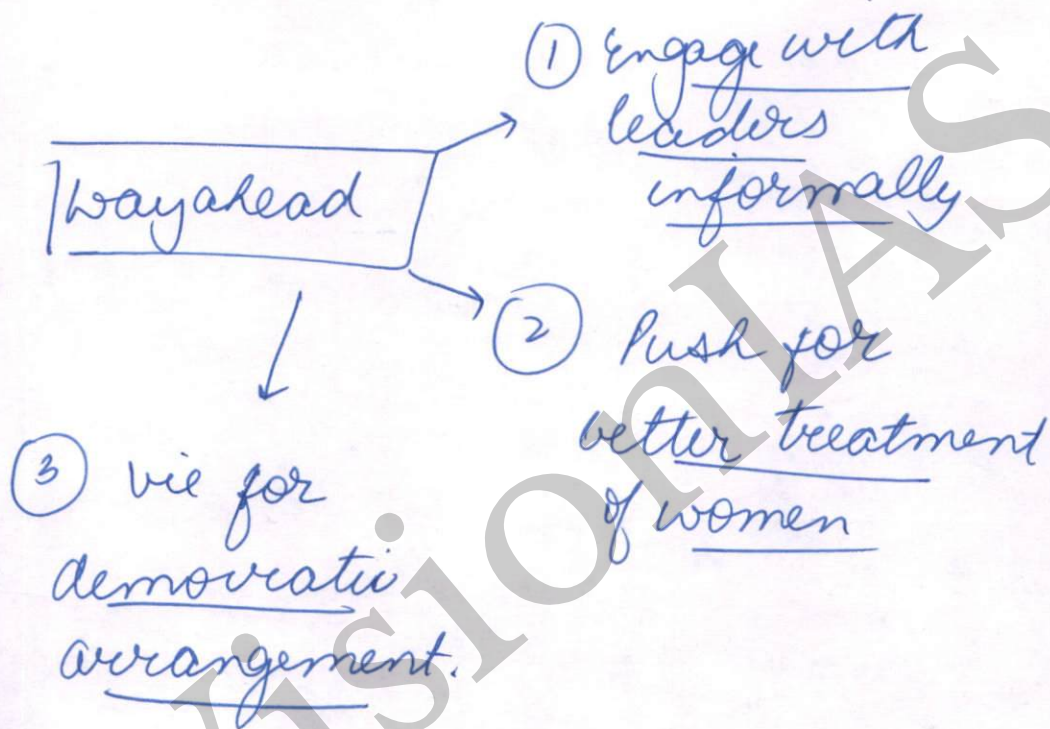 Way ahead
① Engage with
leaders
informally
② Push for
better treatment
of women
③ vie for
democratic
arrangement.
VisionIAS